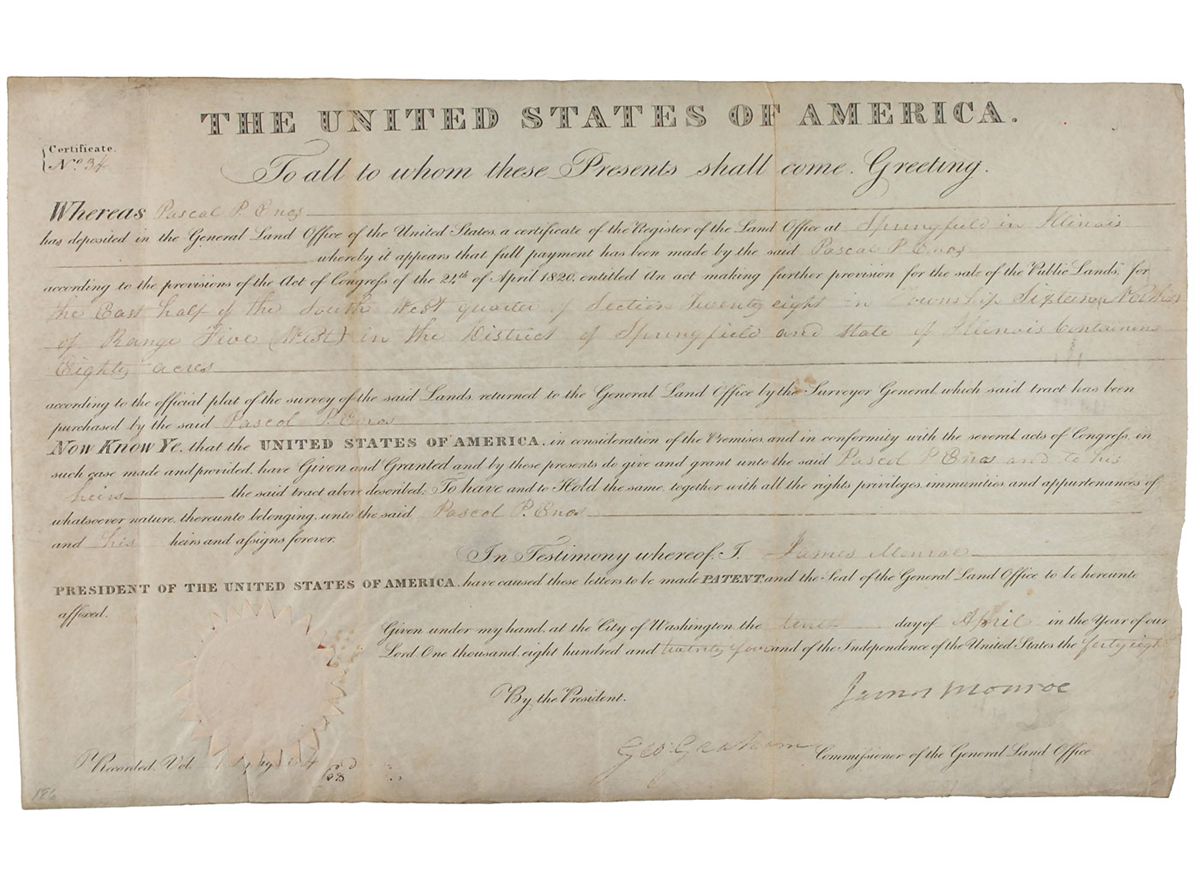 THE UNITED STATES OF AMERICA.
Certificate.
No. 34
To all to whom these Presents shall come, Greeting.
Whereas Pascal P. Enos
has deposited in the General Land Office of the United States, a certificate of the Register of the Land Office at Springfield in Illinois
whereby it appears that full payment has been made by the said Pascal P. Enos
according to the provisions of the Act of Congress of the 24th of April 1820, entitled An act making further provision for the sale of the Public Lands, for
the East half of the South West quarter of Section Twenty eight in Township Sixteen (North)
of Range Five (West) in the District of Springfield and state of Illinois Containing
Eighty acres
according to the official plat of the survey of the said Lands, returned to the General Land Office by the Surveyor General, which said tract has been
purchased by the said Pascal P. Enos
Now Know Ye, that the UNITED STATES OF AMERICA, in consideration of the Premises, and in conformity with the several acts of Congress, in
such case made and provided, have Given and Granted and by these presents do give and grant unto the said Pascal P. Enos and to his
heirs the said tract above described; To have and to Hold the same, together with all the rights privileges, immunities and appurtenances of
whatsoever nature, thereunto belonging, unto the said Pascal P. Enos
and his heirs and assigns forever.
In Testimony whereof, I, James Monroe
PRESIDENT OF THE UNITED STATES OF AMERICA, have caused these letters to be made PATENT and the Seal of the General Land Office to be hereunto
affixed.
Given under my hand, at the City of Washington, the tenth day of April in the Year of our
Lord, One thousand, eight hundred and twenty four and of the Independence of the United States the forty eight
By the President.
James Monroe
Geo: Graham Commissioner of the General Land Office
Recorded, Vol.